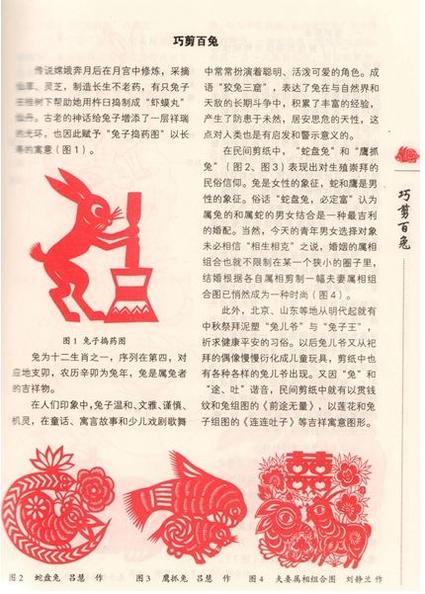 巧剪百兔
传说嫦娥奔月后在月宫中修炼，采摘
仙草、灵芝，制造长生不老药，有只兔子
在桂树下帮助她用杵臼捣制成“虾蟆丸”
仙丹。古老的神话给兔子增添了一层祥瑞
的光环，也因此赋予“兔子捣药图”以长
寿的寓意（图1）。
图1 兔子捣药图
兔为十二生肖之一，序列在第四，对
应地支卯，农历辛卯为兔年，兔是属兔者
的吉祥物。
在人们印象中，兔子温和、文雅、谨慎、
机灵，在童话、寓言故事和少儿戏剧歌舞
中常常扮演着聪明、活泼可爱的角色。成
语“狡兔三窟”，表达了兔在与自然界和
天敌的长期斗争中，积累了丰富的经验，
产生了防患于未然，居安思危的天性，这
点对人类也是有启发和警示意义的。
在民间剪纸中，“蛇盘兔”和“鹰抓
兔”（图2、图3）表现出对生殖崇拜的
民俗信仰。兔是女性的象征，蛇和鹰是男
性的象征。俗话“蛇盘兔，必定富”认为
属兔的和属蛇的男女结合是一种最吉利
的婚配。当然，今天的青年男女选择对象
未必相信“相生相克”之说，婚姻的属相
组合也就不限制在某一个狭小的圈子里，
结婚根据各自属相剪制一幅夫妻属相组
合图已悄然成为一种时尚（图4）。
此外，北京、山东等地从明代起就有
中秋祭拜泥塑“兔儿爷”与“兔子王”，
祈求健康平安的习俗。以后兔儿爷又从祀
拜的偶像慢慢衍化成儿童玩具，剪纸中也
有各种各样的兔儿爷出现。又因“兔”和
“途、吐”谐音，民间剪纸中就有以贯钱
纹和兔组图的《前途无量》，以莲花和兔
子组图的《连连吐子》等吉祥寓意图形。
图2 蛇盘兔 吕慧 作
图3 鹰抓兔 吕慧 作
图4 夫妻属相组合图 刘静兰 作
巧剪百兔